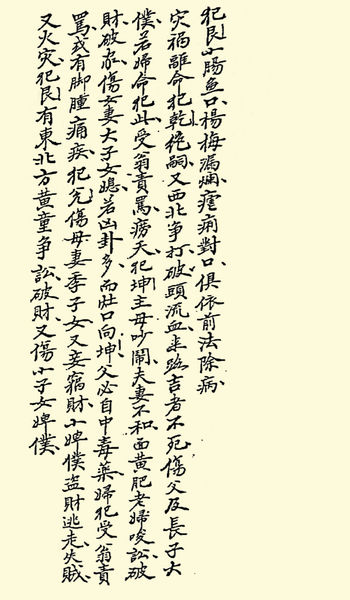 犯艮小腸魚口楊梅漏爛痤痢對口俱依前法除病
灾禍離命犯乾絕嗣又西北爭打破頭流血半路吉者不死傷父及長子大
僕若婦命犯此受翁責罵痨夭犯坤主母吵鬧夫妻不和面黄肥老婦唆訟破
財破家傷女妻大子女媳若凶卦多而灶口向坤父必自中毒藥婦犯受翁責
罵或有脚腫痛疾犯兌傷母妻季子女又妾竊財小婢僕盗財逃走失賊
又火灾犯艮有東北方黄童争訟破財又傷小子女婢僕